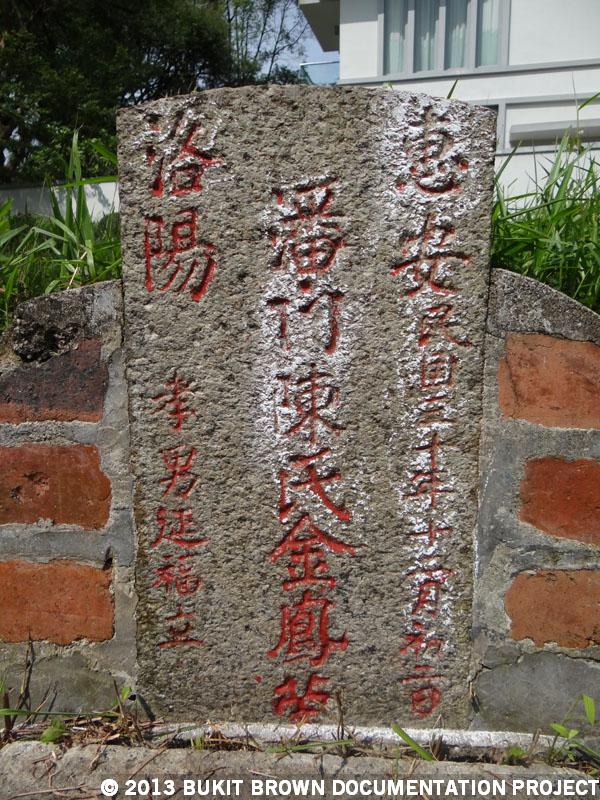 惠安民国三十年十二月初二日
潘门陳氏金鳳
洛陽 孝男延福立
© 2013 BUKIT BROWN DOCUMENTATION PROJECT